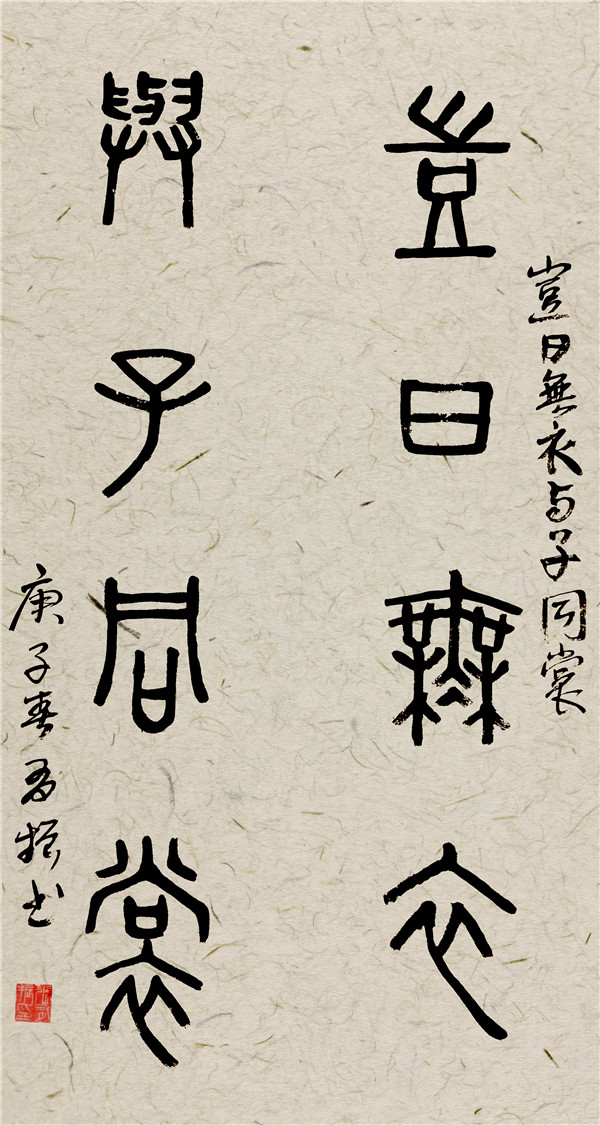 豈曰無衣
與子同裳
豈曰無衣与子同裳
庚子春
书